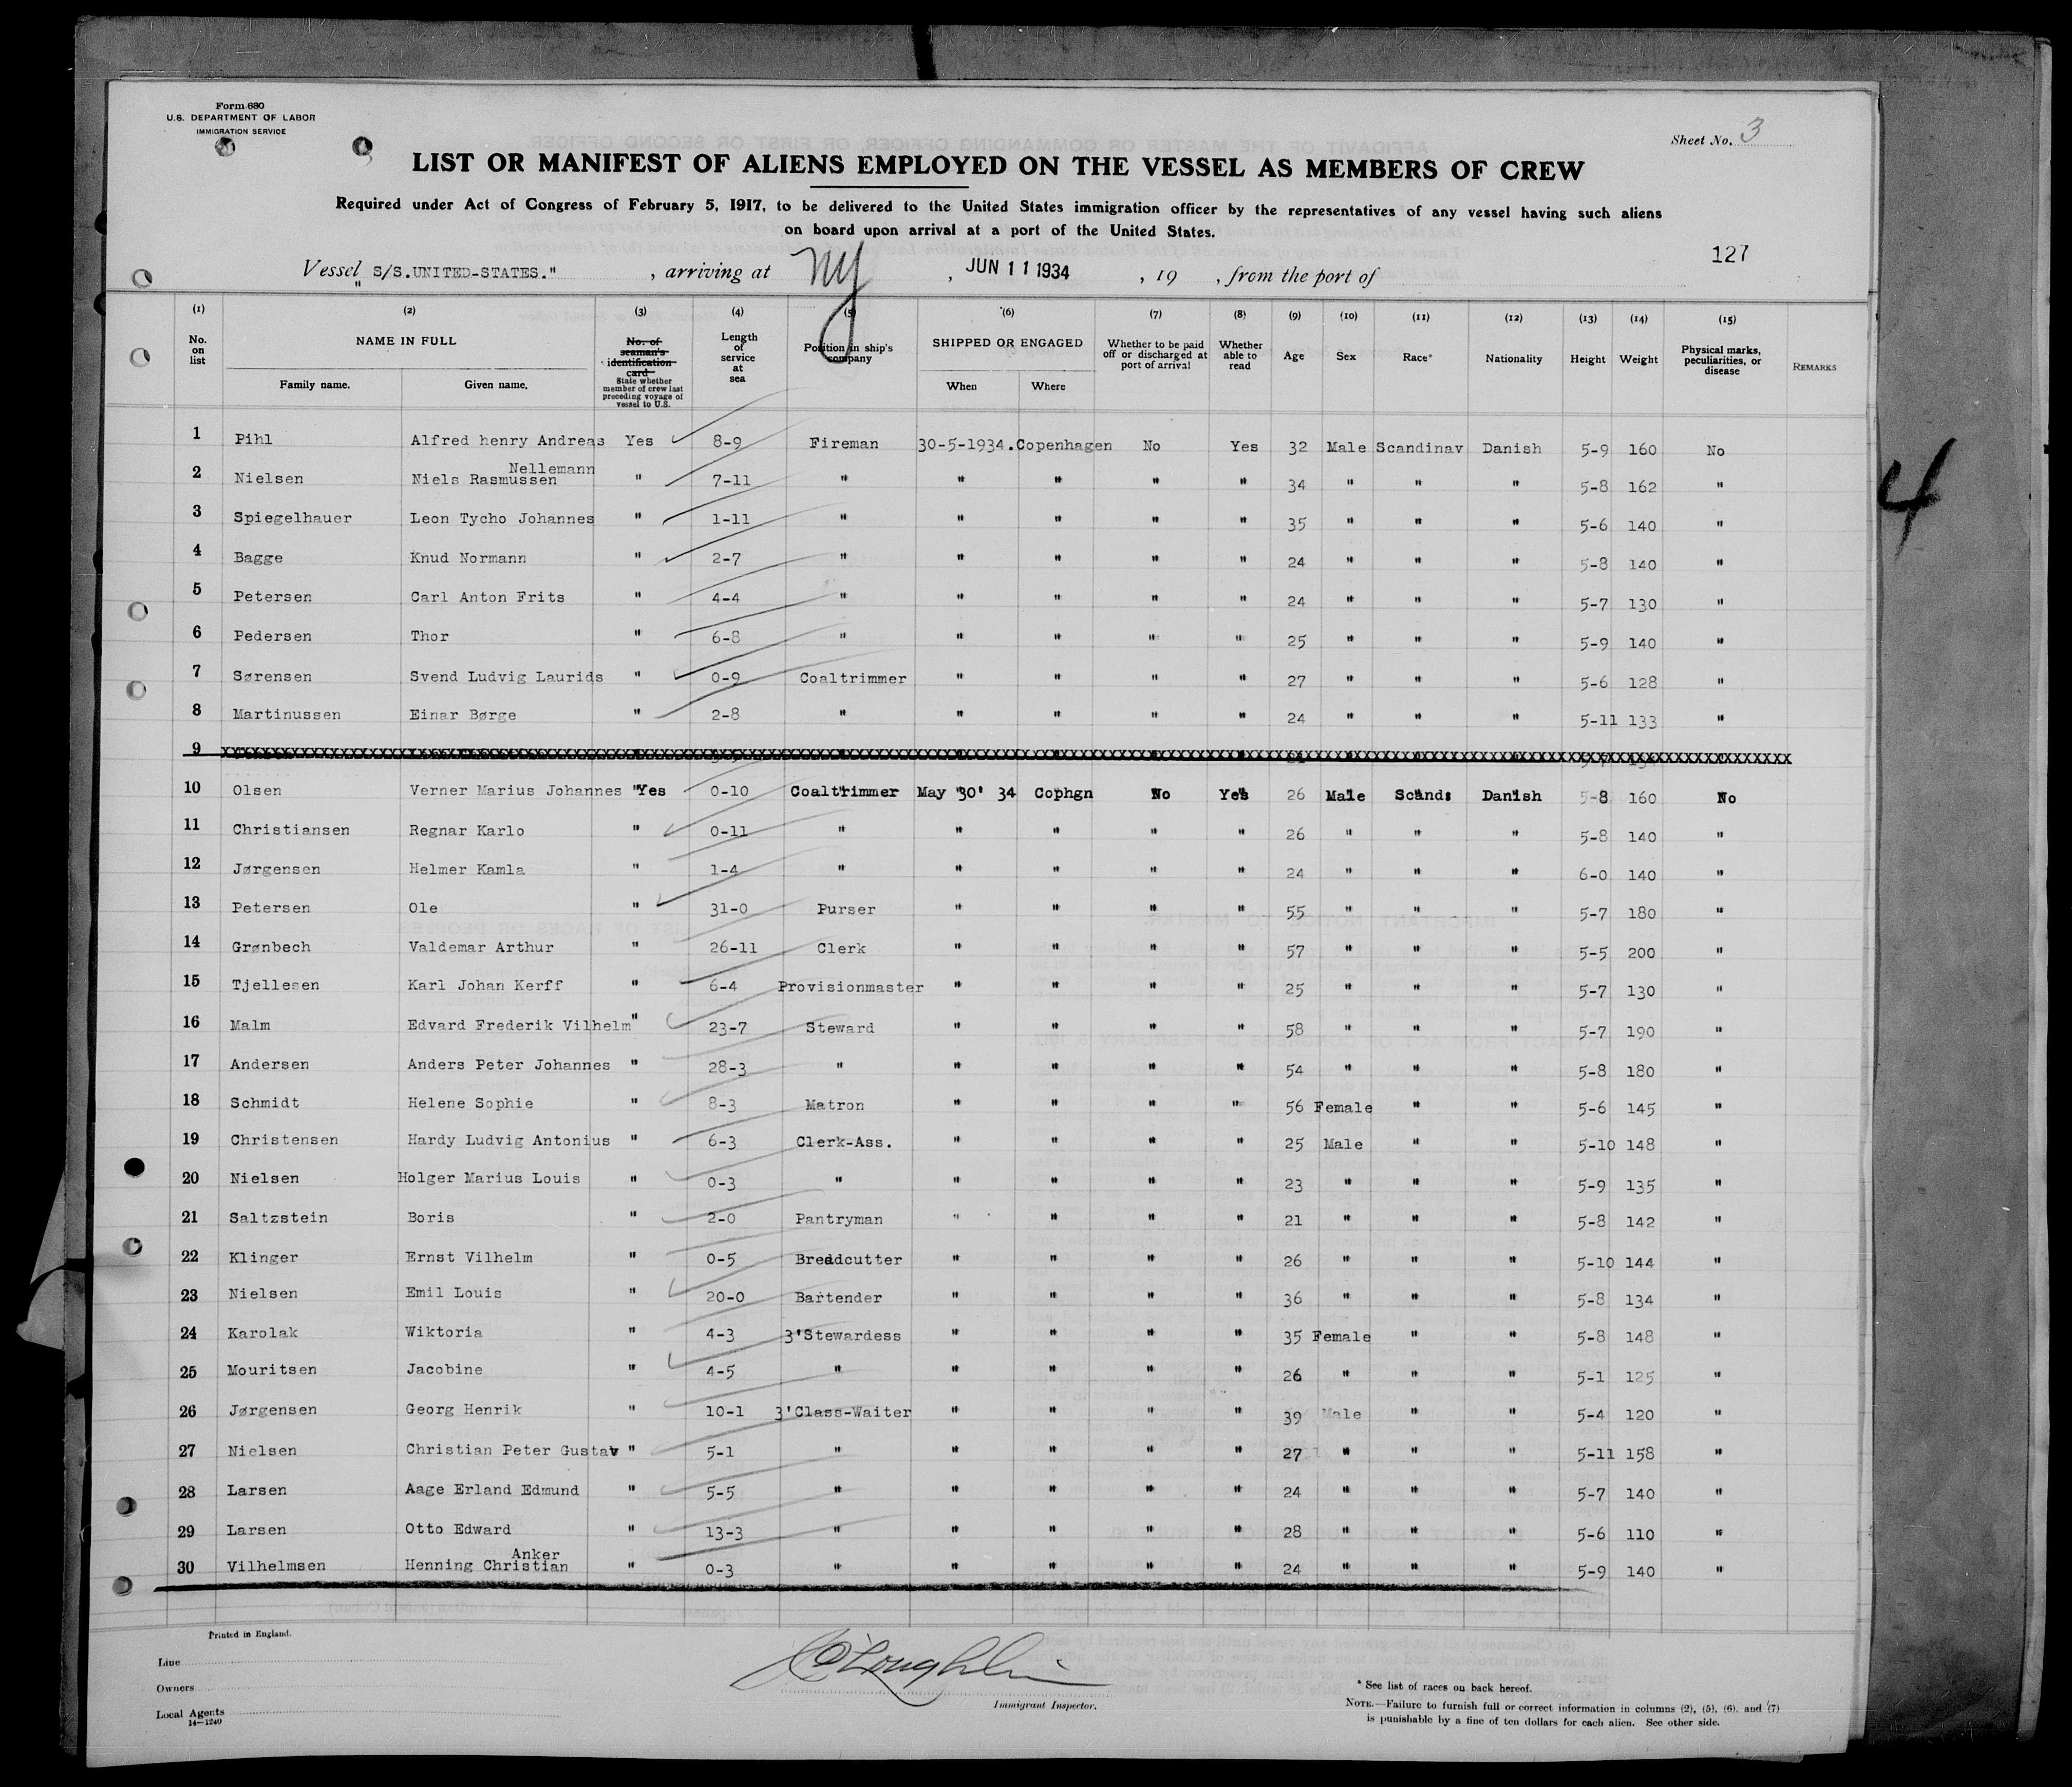 Form 680
U.S. DEPARTMENT OF LABOR
IMMIGRATION SERVICE
Sheet No. 3
LIST OR MANIFEST OF ALIENS EMPLOYED ON THE VESSEL AS MEMBERS OF CREW
Required under Act of Congress of February 5, 1917, to be delivered to the United States immigration officer by the representatives of any vessel having such aliens
on board upon arrival at a port of the United States.
127
Vessel "S/S.UNITED-STATES." , arriving at NY , JUN 11 1934 , 19 , from the port of
(1) (2) (3) (4) (5) (6) (7) (8) (9) (10) (11) (12) (13) (14) (15)
No. on list NAME IN FULL Family name. Given name. No. of seaman's identification card State whether member of crew last preceding voyage of vessel to U.S. Length of service at sea Position in ship's company SHIPPED OR ENGAGED When Where Whether to be paid off or discharged at port of arrival Whether able to read Age Sex Race* Nationality Height Weight Physical marks, peculiarities, or disease REMARKS
1 Pihl Alfred henry Andreas Yes 8-9 Fireman 30-5-1934. Copenhagen No Yes 32 Male Scandinav Danish 5-9 160 No
Nellemann
2 Nielsen Niels Rasmussen " 7-11 " " " " " 34 " " " 5-8 162 "
3 Spiegelhauer Leon Tycho Johannes " 1-11 " " " " " 35 " " " 5-6 140 "
4 Bagge Knud Normann " 2-7 " " " " " 24 " " " 5-8 140 "
5 Petersen Carl Anton Frits " 4-4 " " " " " 24 " " " 5-7 130 "
6 Pedersen Thor " 6-8 " " " " " 25 " " " 5-9 140 "
7 Sørensen Svend Ludvig Laurids " 0-9 Coaltrimmer " " " " 27 " " " 5-6 128 "
8 Martinussen Einar Børge " 2-8 " " " " " 24 " " " 5-11 133 "
9
10 Olsen Verner Marius Johannes "Yes 0-10 Coaltrimmer May 30' 34 Cophgn No Yes 26 Male Scand: Danish 5-8 160 No
11 Christiansen Regnar Karlo " 0-11 " " " " " 26 " " " 5-8 140 "
12 Jørgensen Helmer Kamla " 1-4 " " " " " 24 " " " 6-0 140 "
13 Petersen Ole " 31-0 Purser " " " " 55 " " " 5-7 180 "
14 Grønbech Valdemar Arthur " 26-11 Clerk " " " " 57 " " " 5-5 200 "
15 Tjellesen Karl Johan Kerff " 6-4 Provisionmaster " " " " 25 " " " 5-7 130 "
16 Malm Edvard Frederik Vilhelm " 23-7 Steward " " " " 58 " " " 5-7 190 "
17 Andersen Anders Peter Johannes " 28-3 " " " " " 54 " " " 5-8 180 "
18 Schmidt Helene Sophie " 8-3 Matron " " " " 56 Female " " 5-6 145 "
19 Christensen Hardy Ludvig Antonius " 6-3 Clerk-Ass. " " " " 25 Male " " 5-10 148 "
20 Nielsen Holger Marius Louis " 0-3 " " " " " 23 " " " 5-9 135 "
21 Saltzstein Boris " 2-0 Pantryman " " " " 21 " " " 5-8 142 "
22 Klinger Ernst Vilhelm " 0-5 Breadcutter " " " " 26 " " " 5-10 144 "
23 Nielsen Emil Louis " 20-0 Bartender " " " " 36 " " " 5-8 134 "
24 Karolak Wiktoria " 4-3 3'Stewardess " " " " 35 Female " " 5-8 148 "
25 Mouritsen Jacobine " 4-5 " " " " " 26 " " " 5-1 125 "
26 Jørgensen Georg Henrik " 10-1 3'Class-Waiter " " " " 39 Male " " 5-4 120 "
27 Nielsen Christian Peter Gustav " 5-1 " " " " " 27 " " " 5-11 158 "
28 Larsen Aage Erland Edmund " 5-5 " " " " " 24 " " " 5-7 140 "
29 Larsen Otto Edward " 13-3 " " " " " 28 " " " 5-6 110 "
Anker
30 Vilhelmsen Henning Christian " 0-3 " " " " " 24 " " " 5-9 140 "
4
Printed in England.
Line
Owners
Local Agents
14-1240
O'Loughlin
Immigrant Inspector.
* See list of races on back hereof.
NOTE.—Failure to furnish full or correct information in columns (2), (5), (6), and (7)
is punishable by a fine of ten dollars for each alien. See other side.